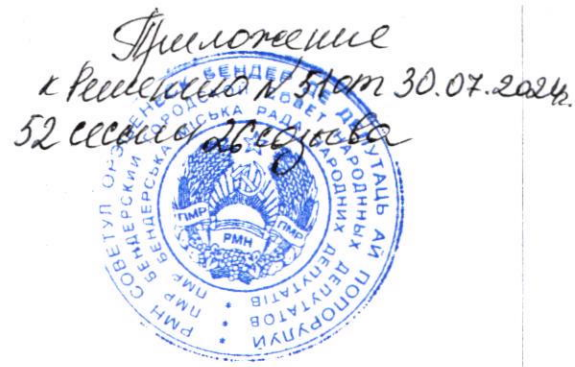 Приложение
к Решению № 51 от 30.07.2024г.
52 сессии 26 созыва
РМН СОВЕТУЛ ОРЭШЕНЕСК БЕНДЕР ДЕ ДЕПУТАЦЬ АЙ ПОПОРУЛУЙ
ПМР БЕНДЕРСКИЙ ГОРОДСКОЙ СОВЕТ НАРОДНЫХ ДЕПУТАТОВ
ПМР БЕНДЕРСЬКА МІСЬКА РАДА НАРОДНИХ ДЕПУТАТІВ
ПМР
РМН
ПМР